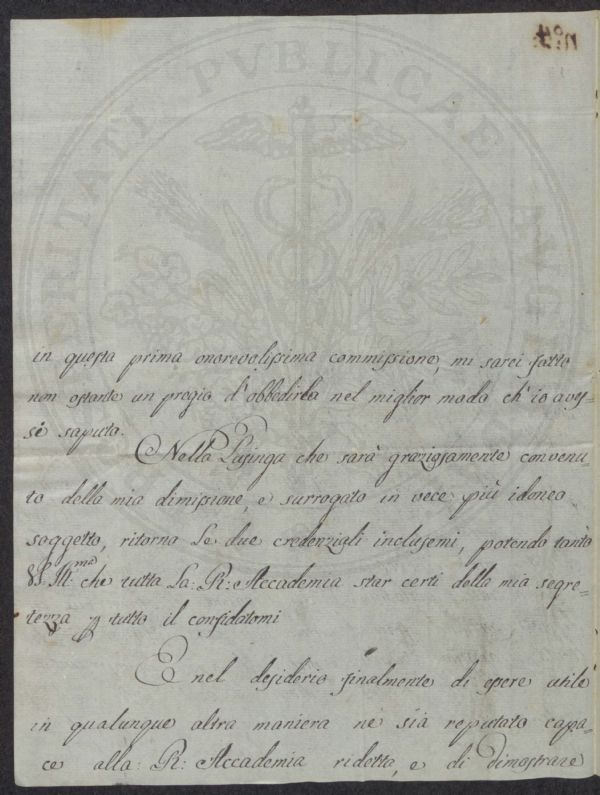 n.º 4.
PROSPERITATI PVBLICAE AVGENDAE
in questa prima onorevolissima commissione, mi sarei fatto
non ostante un pregio d'obbedirla nel miglior modo ch'io aves=
se saputo.
Nella Lusinga che sarà graziosamente convenu=
to della mia dimissione, e surrogato in vece più idoneo
soggetto, ritorno Le due credenziali inclusemi, potendo tanto
V.S. Ill.ma che tutta La: R: Accademia star certi della mia segre=
tezza p tutto il confidatomi
E nel desiderio finalmente di essere utile
in qualunque altra maniera ne sia reputato capa=
ce alla: R: Accademia ridetta, e di dimostrare